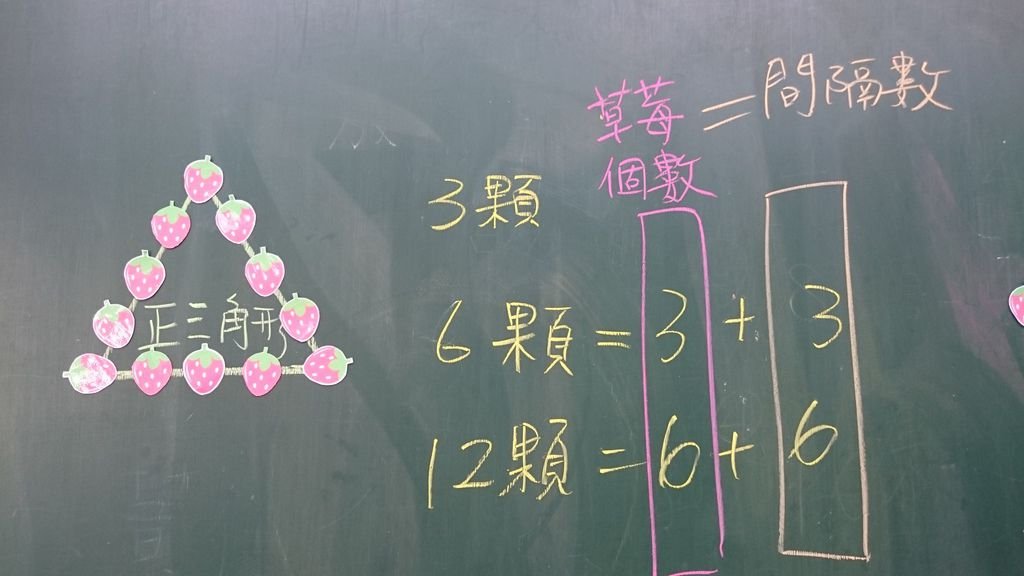 草莓 = 間隔數
個數
3顆
6顆 = 3 + 3
12顆 = 6 + 6
正三角形